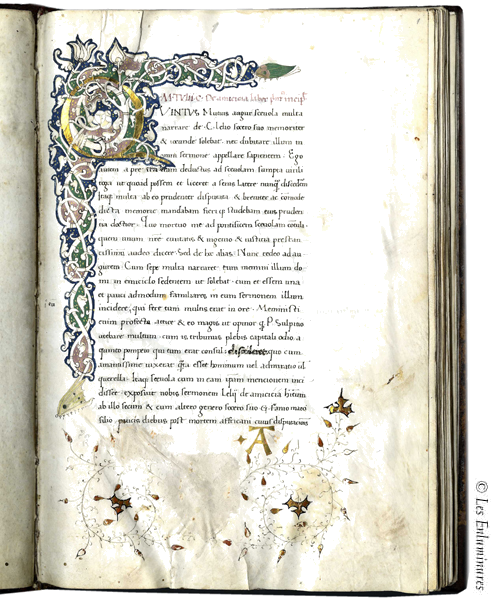 M. TVllii C. De amicicia liber
VINTVS Mutius augur sceuola multa
narrare de C. Lelio socero suo memoriter
& iocunde solebat nec dubitare illum in
omni sermone appellare sapientem. Ego
autem a patre ita eram deductus ad sceuolam sumpta uirili
toga ut quoad possem et liceret a senis latere nunq̃ discederem
Itaq; multa ab eo prudenter disputata & breuiter ac comode
dicta memorie mandabam fieriq; studebam eius pruden
tia doctior. Quo mortuo me ad pontificem sceuolam contuli
quem unum nostre ciuitatis & ingenio & iusticia prestan
tissimum audeo dicere. Sed de hoc alias. Nunc redeo ad au
gurem. Cum sepe multa narraret tum memini illum do
mi in emiciclo sedentem ut solebat cum et essem una
et pauci admodum familiares in eum sermonem illum
incidere, qui fere tum multis erat in ore. Meministi
enim profecto attice & eo magis ut opinor q P. Sulpitio
utebare multum cum is tribunus plebis capitali odio a
quinto pompeio qui tum erat consul dissideret quo cum
amantissime uixerat quanta esset hominum uel admiratio uel
querella. Itaq; sceuola cum in eam ipsam mencionem inci
disset exposuit nobis sermonem Lelij de amicicia habitum
ab illo secum & cum altero genero socero suo C. Fannio
filio paucis diebus post mortem affricani cuius disputationis
A
© Les Enluminures